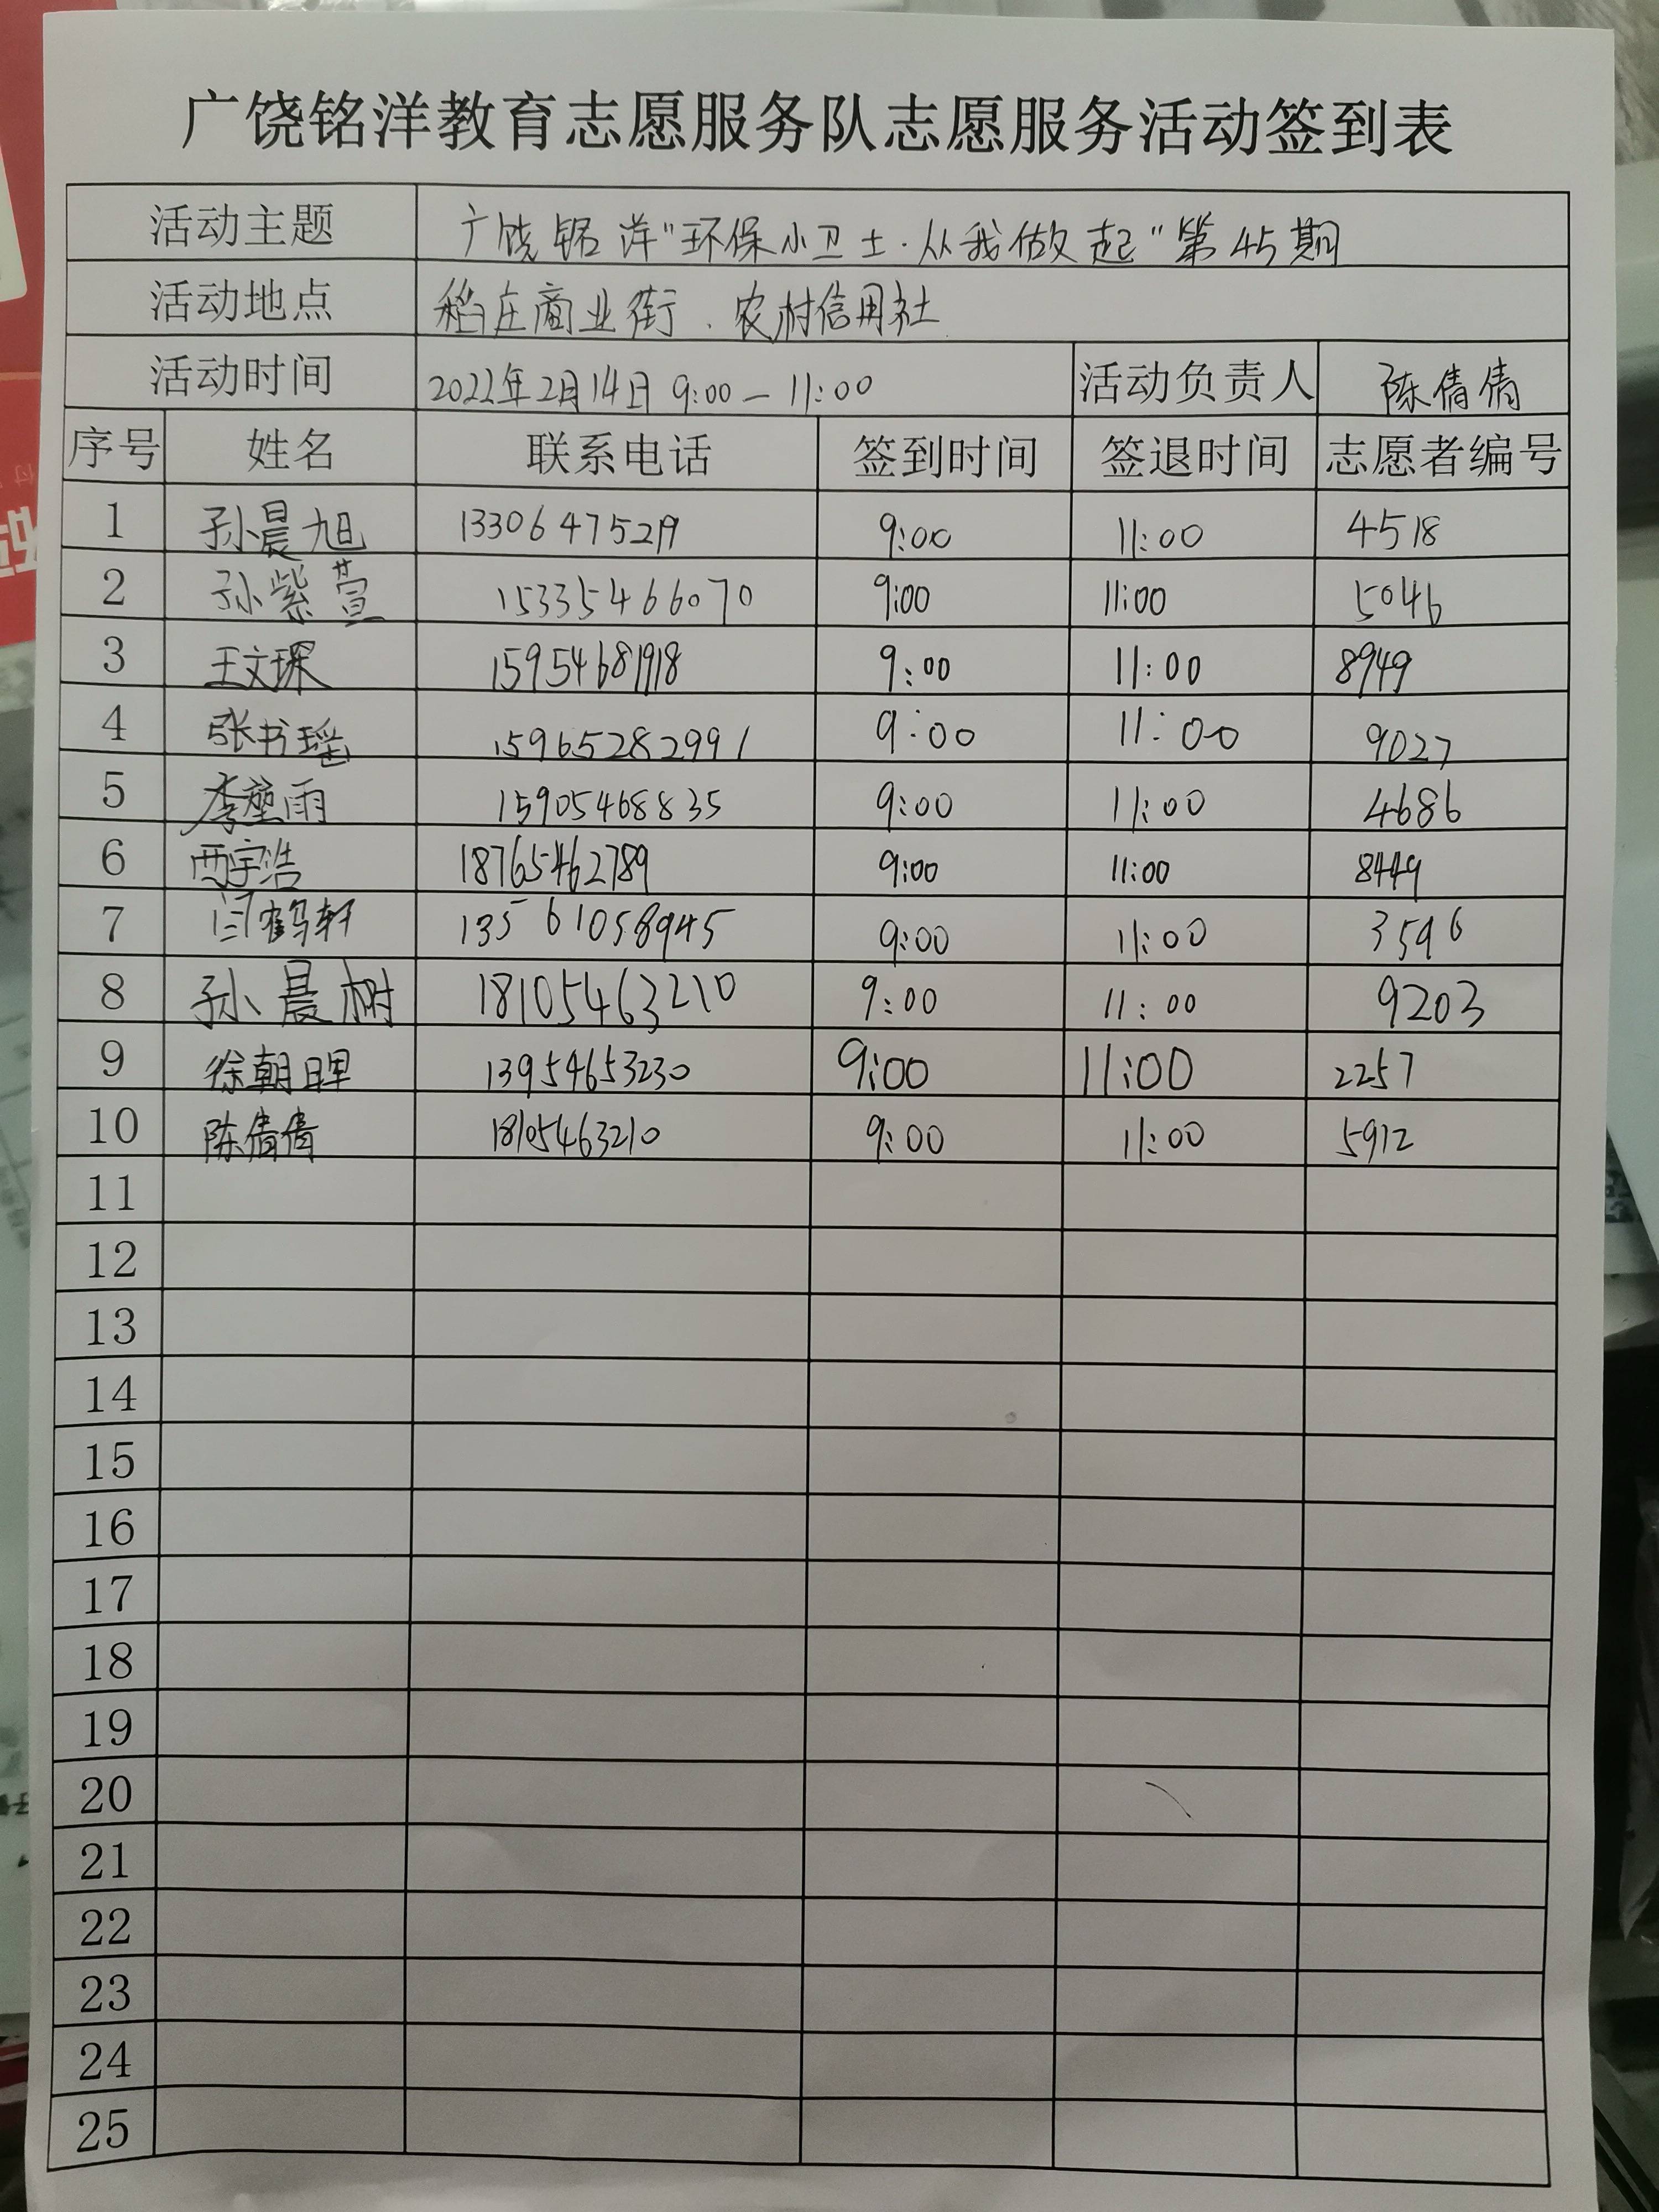 广饶铭洋教育志愿服务队志愿服务活动签到表
活动主题 广饶铭洋"环保小卫士·从我做起"第45期
活动地点 稻庄商业街、农村信用社
活动时间 2022年2月14日 9:00—11:00 活动负责人 陈倩倩
序号 姓名 联系电话 签到时间 签退时间 志愿者编号
1 孙晨旭 13306475219 9:00 11:00 4518
2 孙紫萱 15335466070 9:00 11:00 5046
3 王文琛 15954681918 9:00 11:00 8949
4 张书瑶 15965282991 9:00 11:00 9027
5 李堃雨 15905468835 9:00 11:00 4686
6 西宇浩 18765462789 9:00 11:00 8449
7 闫鹤轩 13561058945 9:00 11:00 3596
8 孙晨树 18105463210 9:00 11:00 9203
9 徐朝晖 13954653230 9:00 11:00 2257
10 陈倩倩 18105463210 9:00 11:00 5912
11
12
13
14
15
16
17
18
19
20
21
22
23
24
25